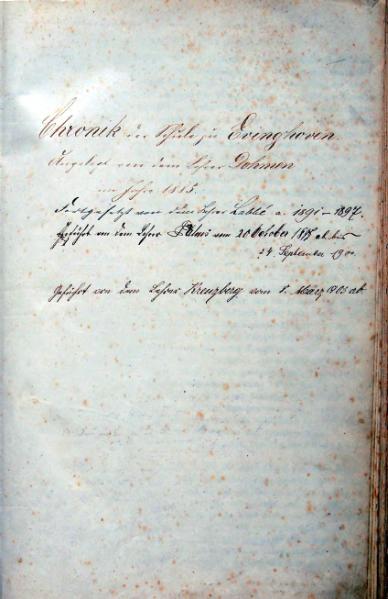 Chronik der Schule zu Evinghoven.
Angelegt von dem Lehrer Dohmen
im Jahre 1885.
Fortgesetzt von dem Lehrer Labbé a. 1891–1897.
Geführt von dem Lehrer vom 20 October ab bis
24. September
Geführt von dem Lehrer Kreuzberg vom 1. März 1905 ab.